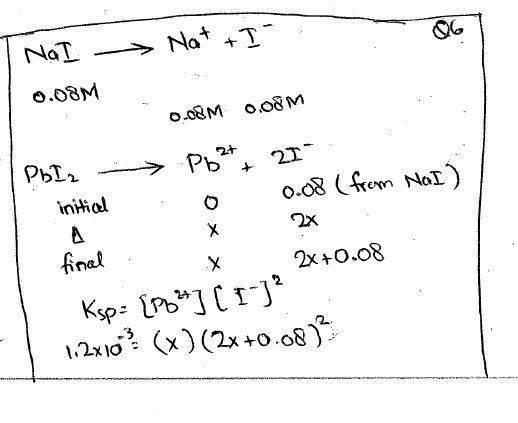 Q6
NaI → Na⁺ + I⁻
0.08M
0.08M 0.08M
PbI₂ → Pb²⁺ + 2I⁻
initial 0 0.08 (from NaI)
Δ x 2x
final x 2x+0.08
Ksp = [Pb²⁺][I⁻]²
1.2x10⁻³ = (x)(2x+0.08)²